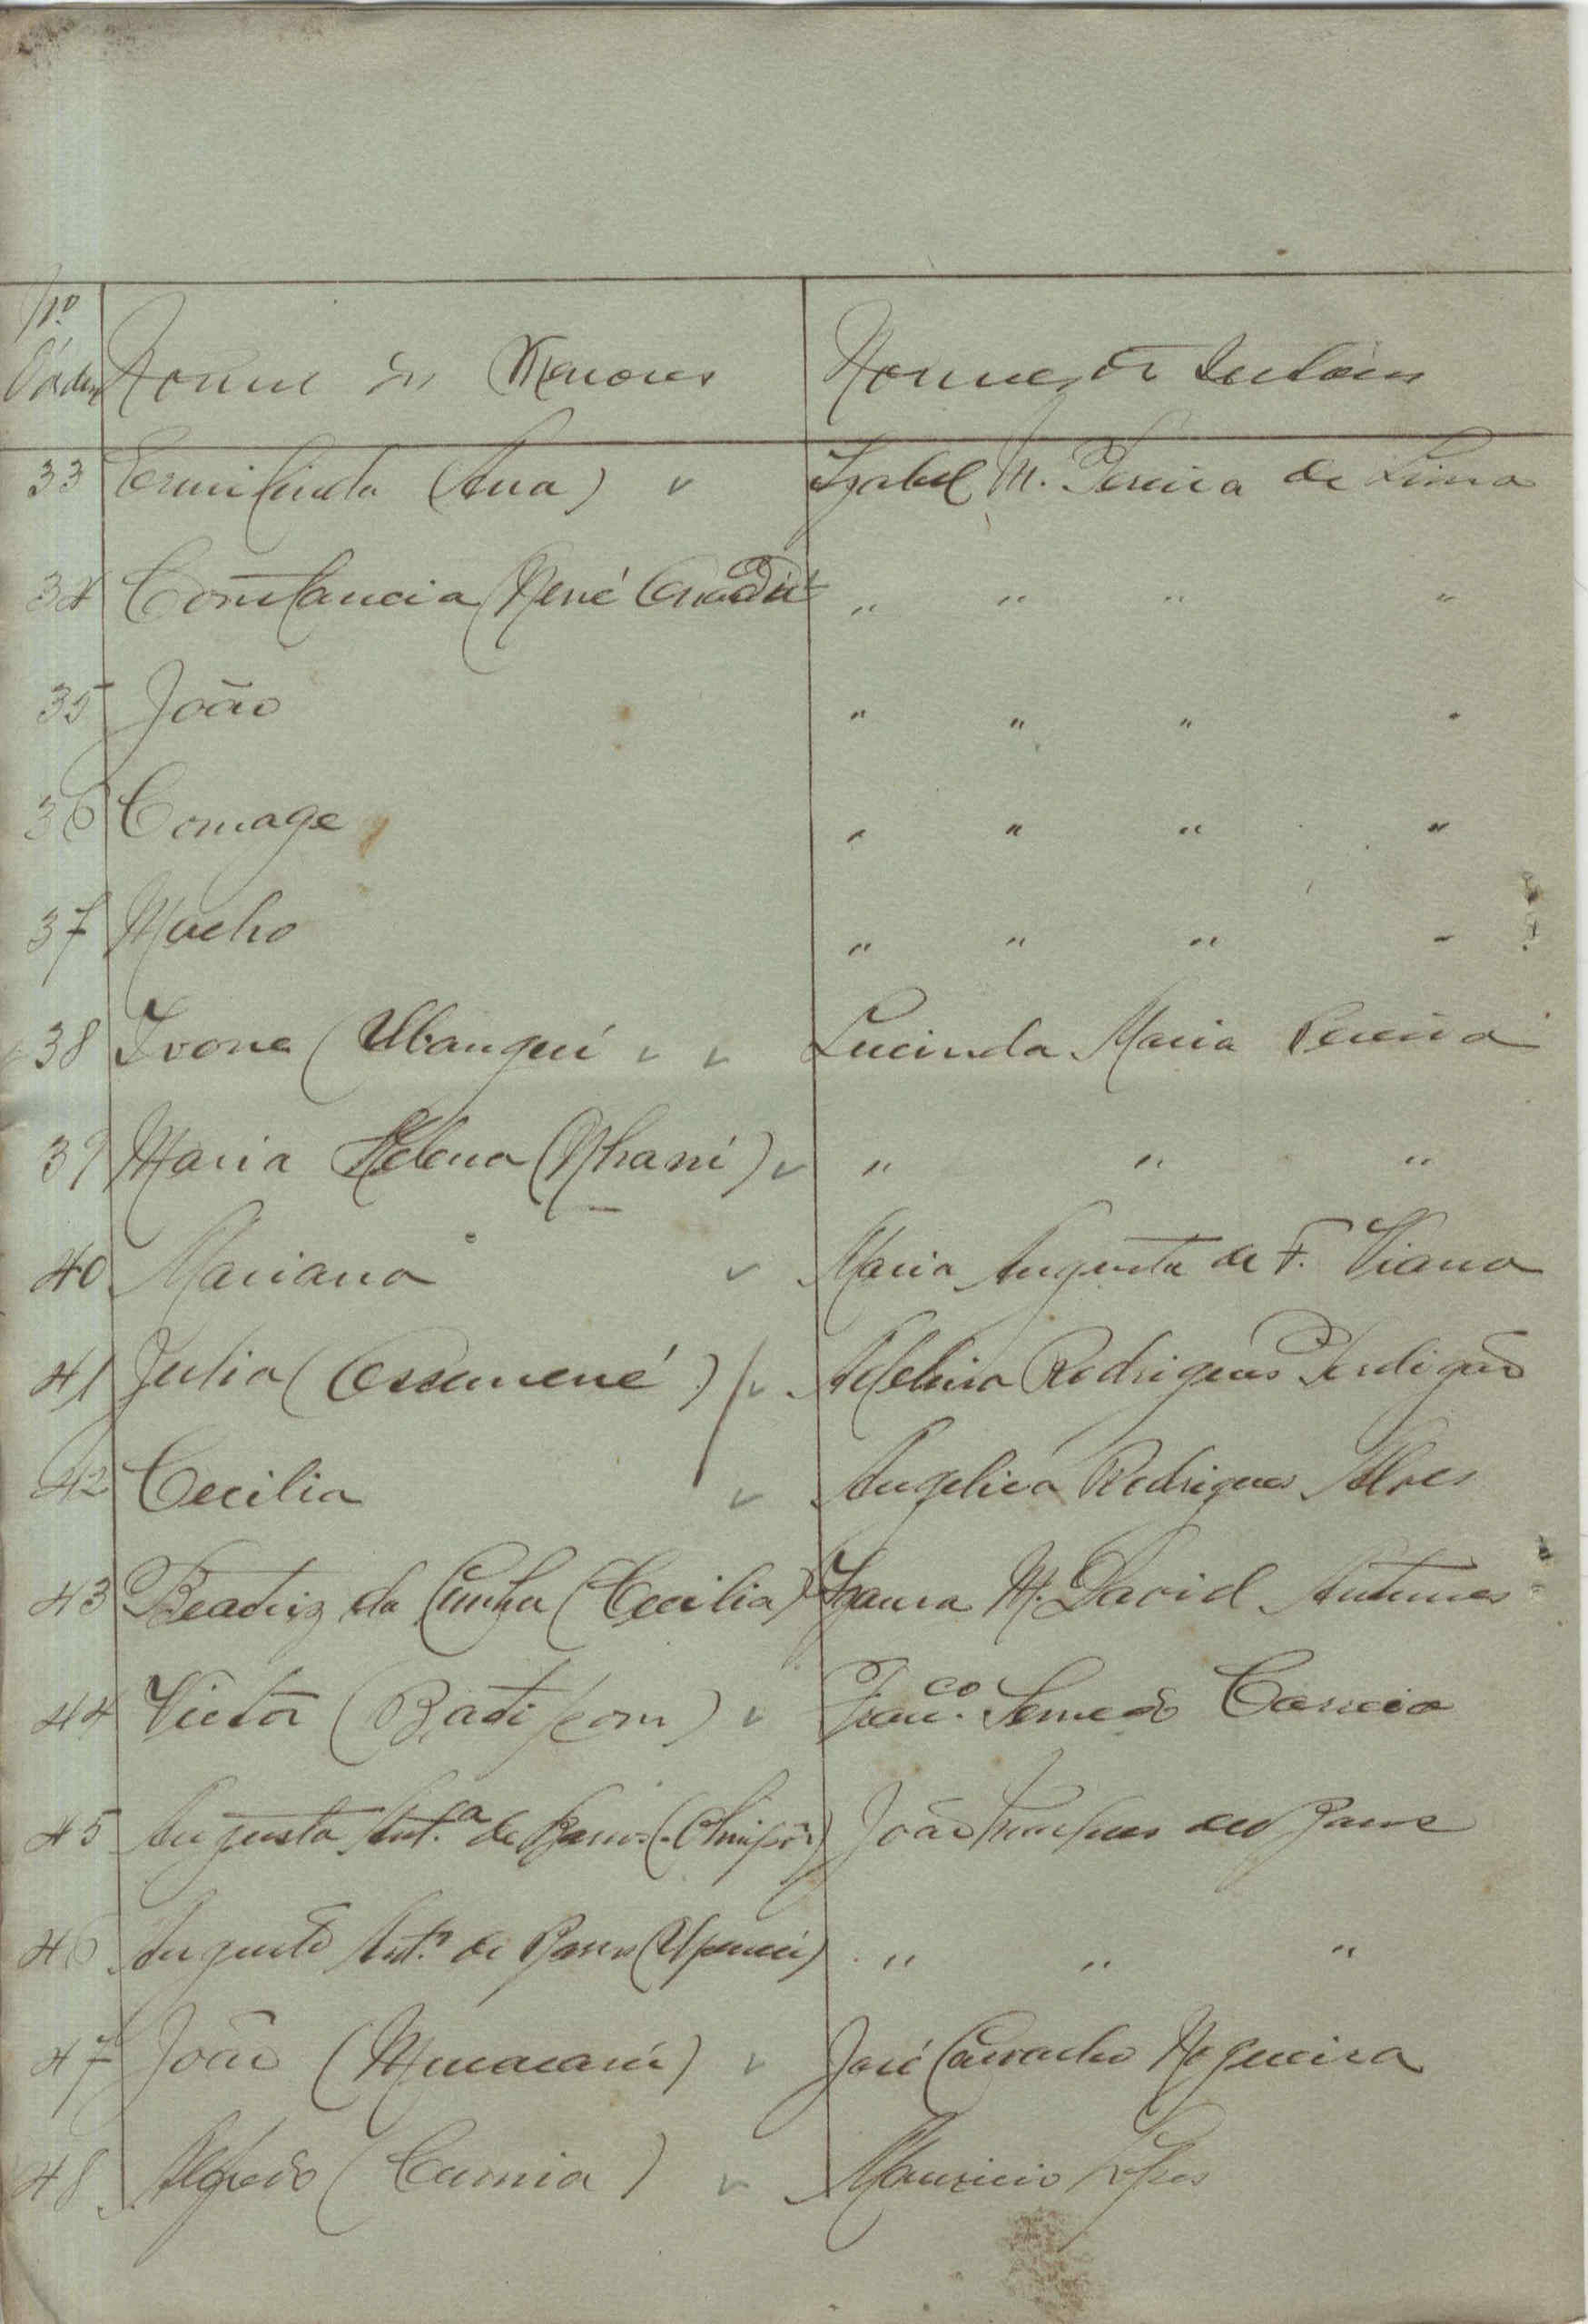 Nº
Órdem Nome dos Menores Nomes dos Tutores
33 Ermilinda (Ana) v Izabel M. Pereira de Lima
34 Constancia (René " " " "
35 João " " " "
36 Comage " " " "
37 Macho " " " "
38 Ivone (Ubangui v v Lucinda Maria Pereira
39 Maria Helena (Nhani) v " " "
40 Mariana v Maria Augusta de F. Viana
41 Julia (Ossemené) v Adelina Rodrigues Perdigão
42 Cecilia v Angelica Rodrigues Alves
43 Beatriz da Cunha (Cecilia) Izaura M. David Antunes
44 Victor (Batipom) v Franc.co Semedo Correia
45 Augusta Ant.a de Barros João
46 Augusto Ant.º de Barros " " "
47 João v José Carvalho Nogueira
48 Alfredo (Cumia) v Mauricio Lopes